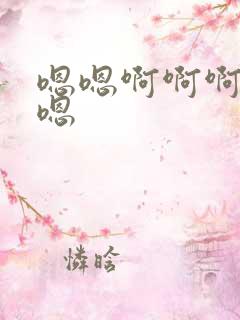 嗯嗯啊啊啊
嗯
憐晗